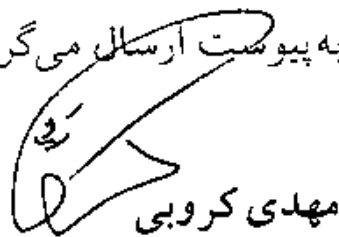 به پیوست ارسال می‌گر
مهدی کروبی